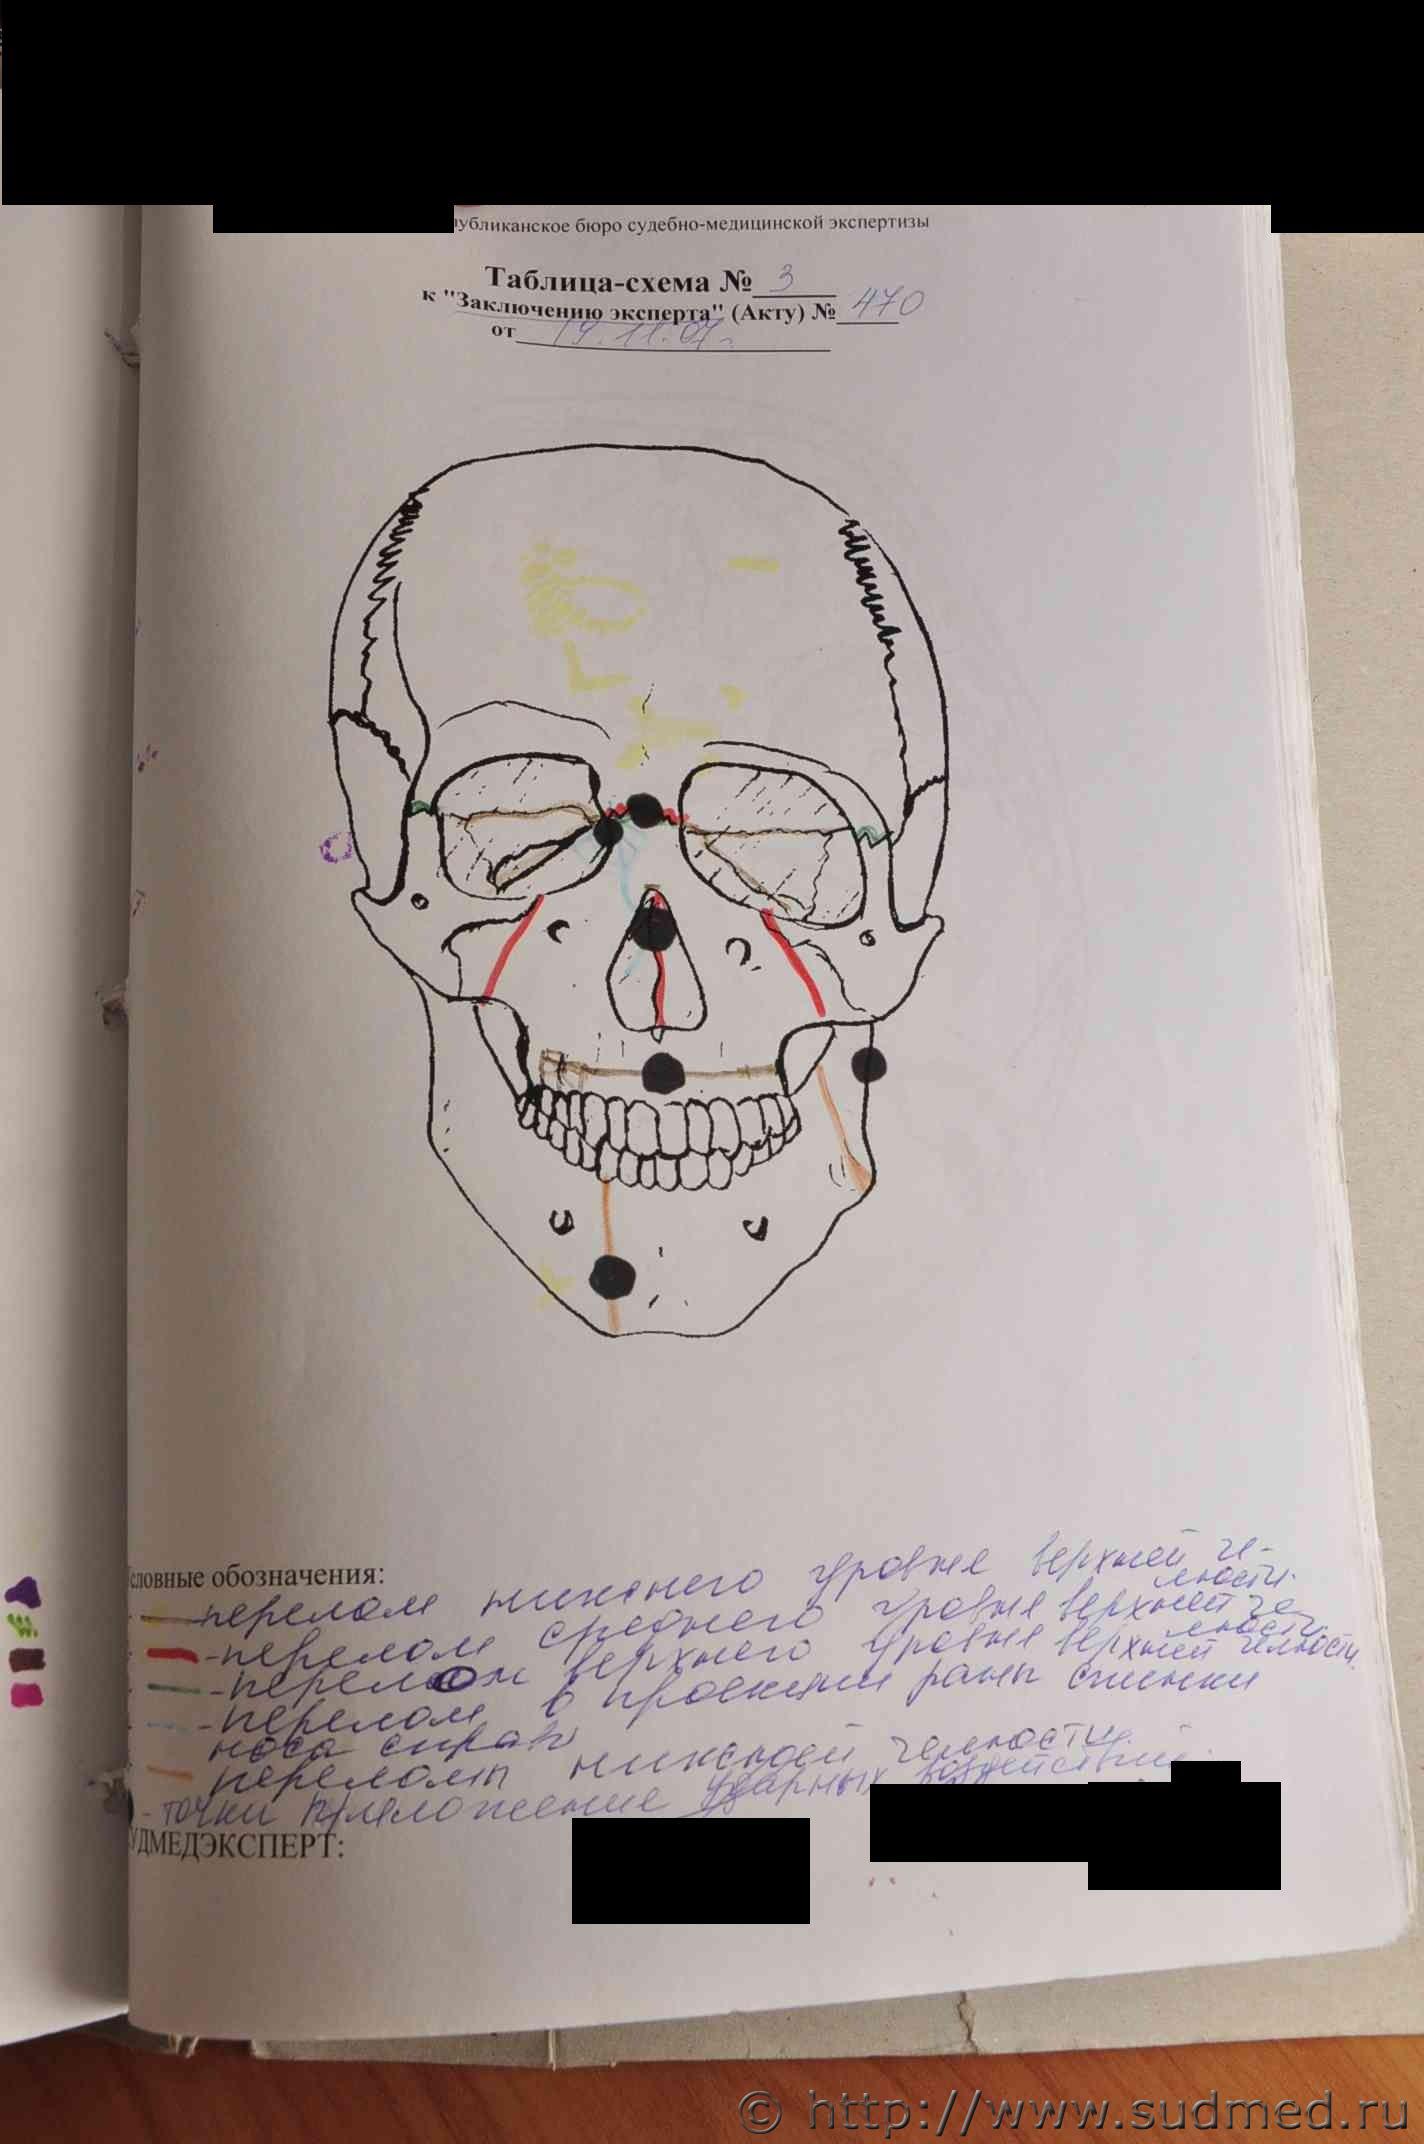 публиканское бюро судебно-медицинской экспертизы
Таблица-схема № 3
к "Заключению эксперта" (Акту) № 470
от 19.11.07г.
словные обозначения:
- перелом нижнего уровня верхней че-
люсти.
- перелом среднего уровня верхней че-
люсти.
- перелом верхнего уровня верхней челюсти.
- перелом в проекции раны спинки
носа справа
- переломы нижней челюсти.
- точки приложение ударных воздействий.
УДМЕДЭКСПЕРТ:
© http://www.sudmed.ru